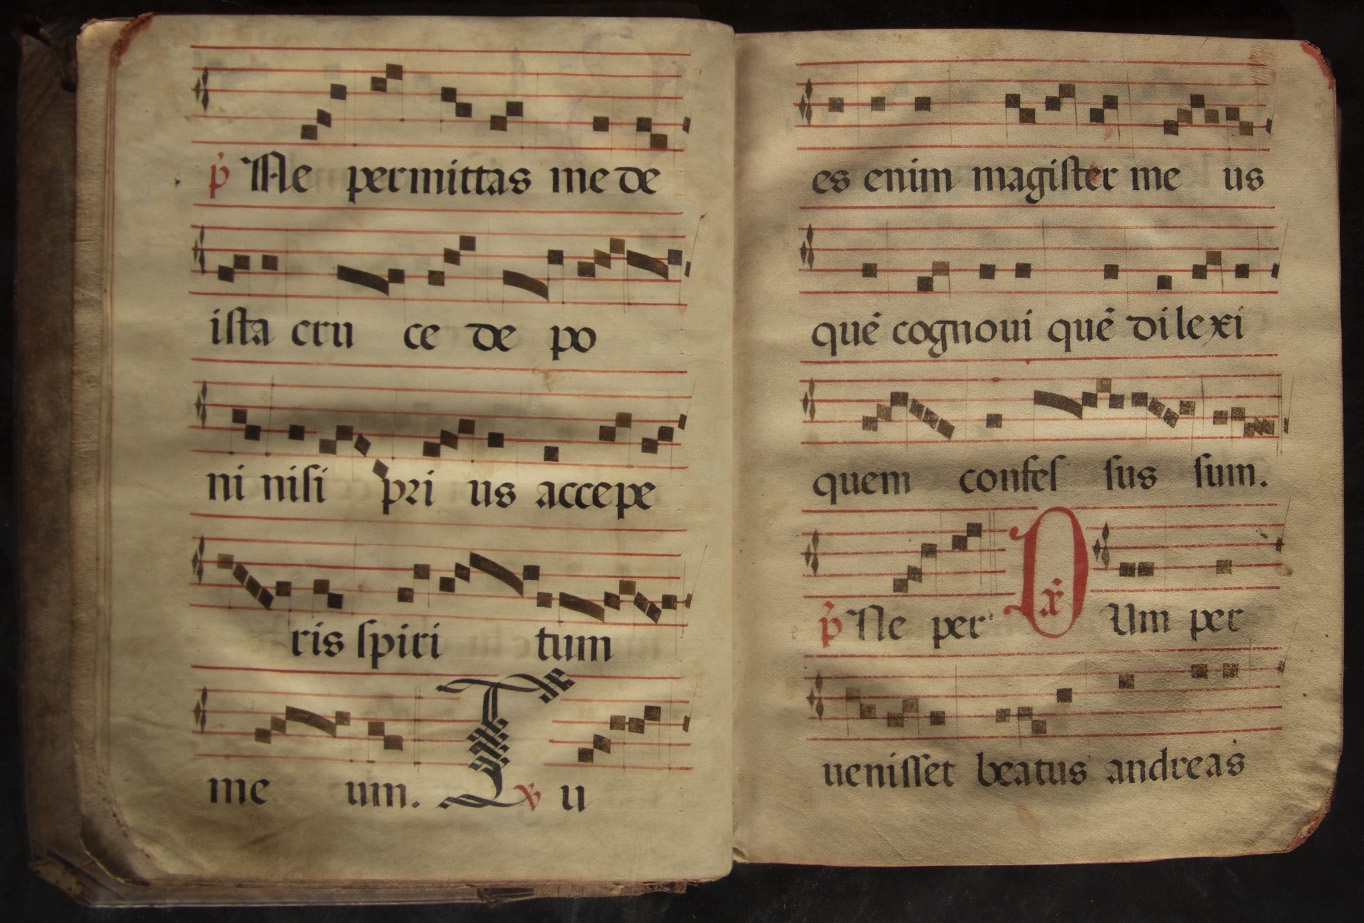 p̃ Ne permittas me de
ista cru ce de po
ni nisi pri us accepe
ris spiri tum
me um. T ꝟ u
es enim magister me us
quẽ cognoui quẽ dilexi
quem confes sus sum.
p̃ Ne per ꝟ D Um per
uenisset beatus andreas